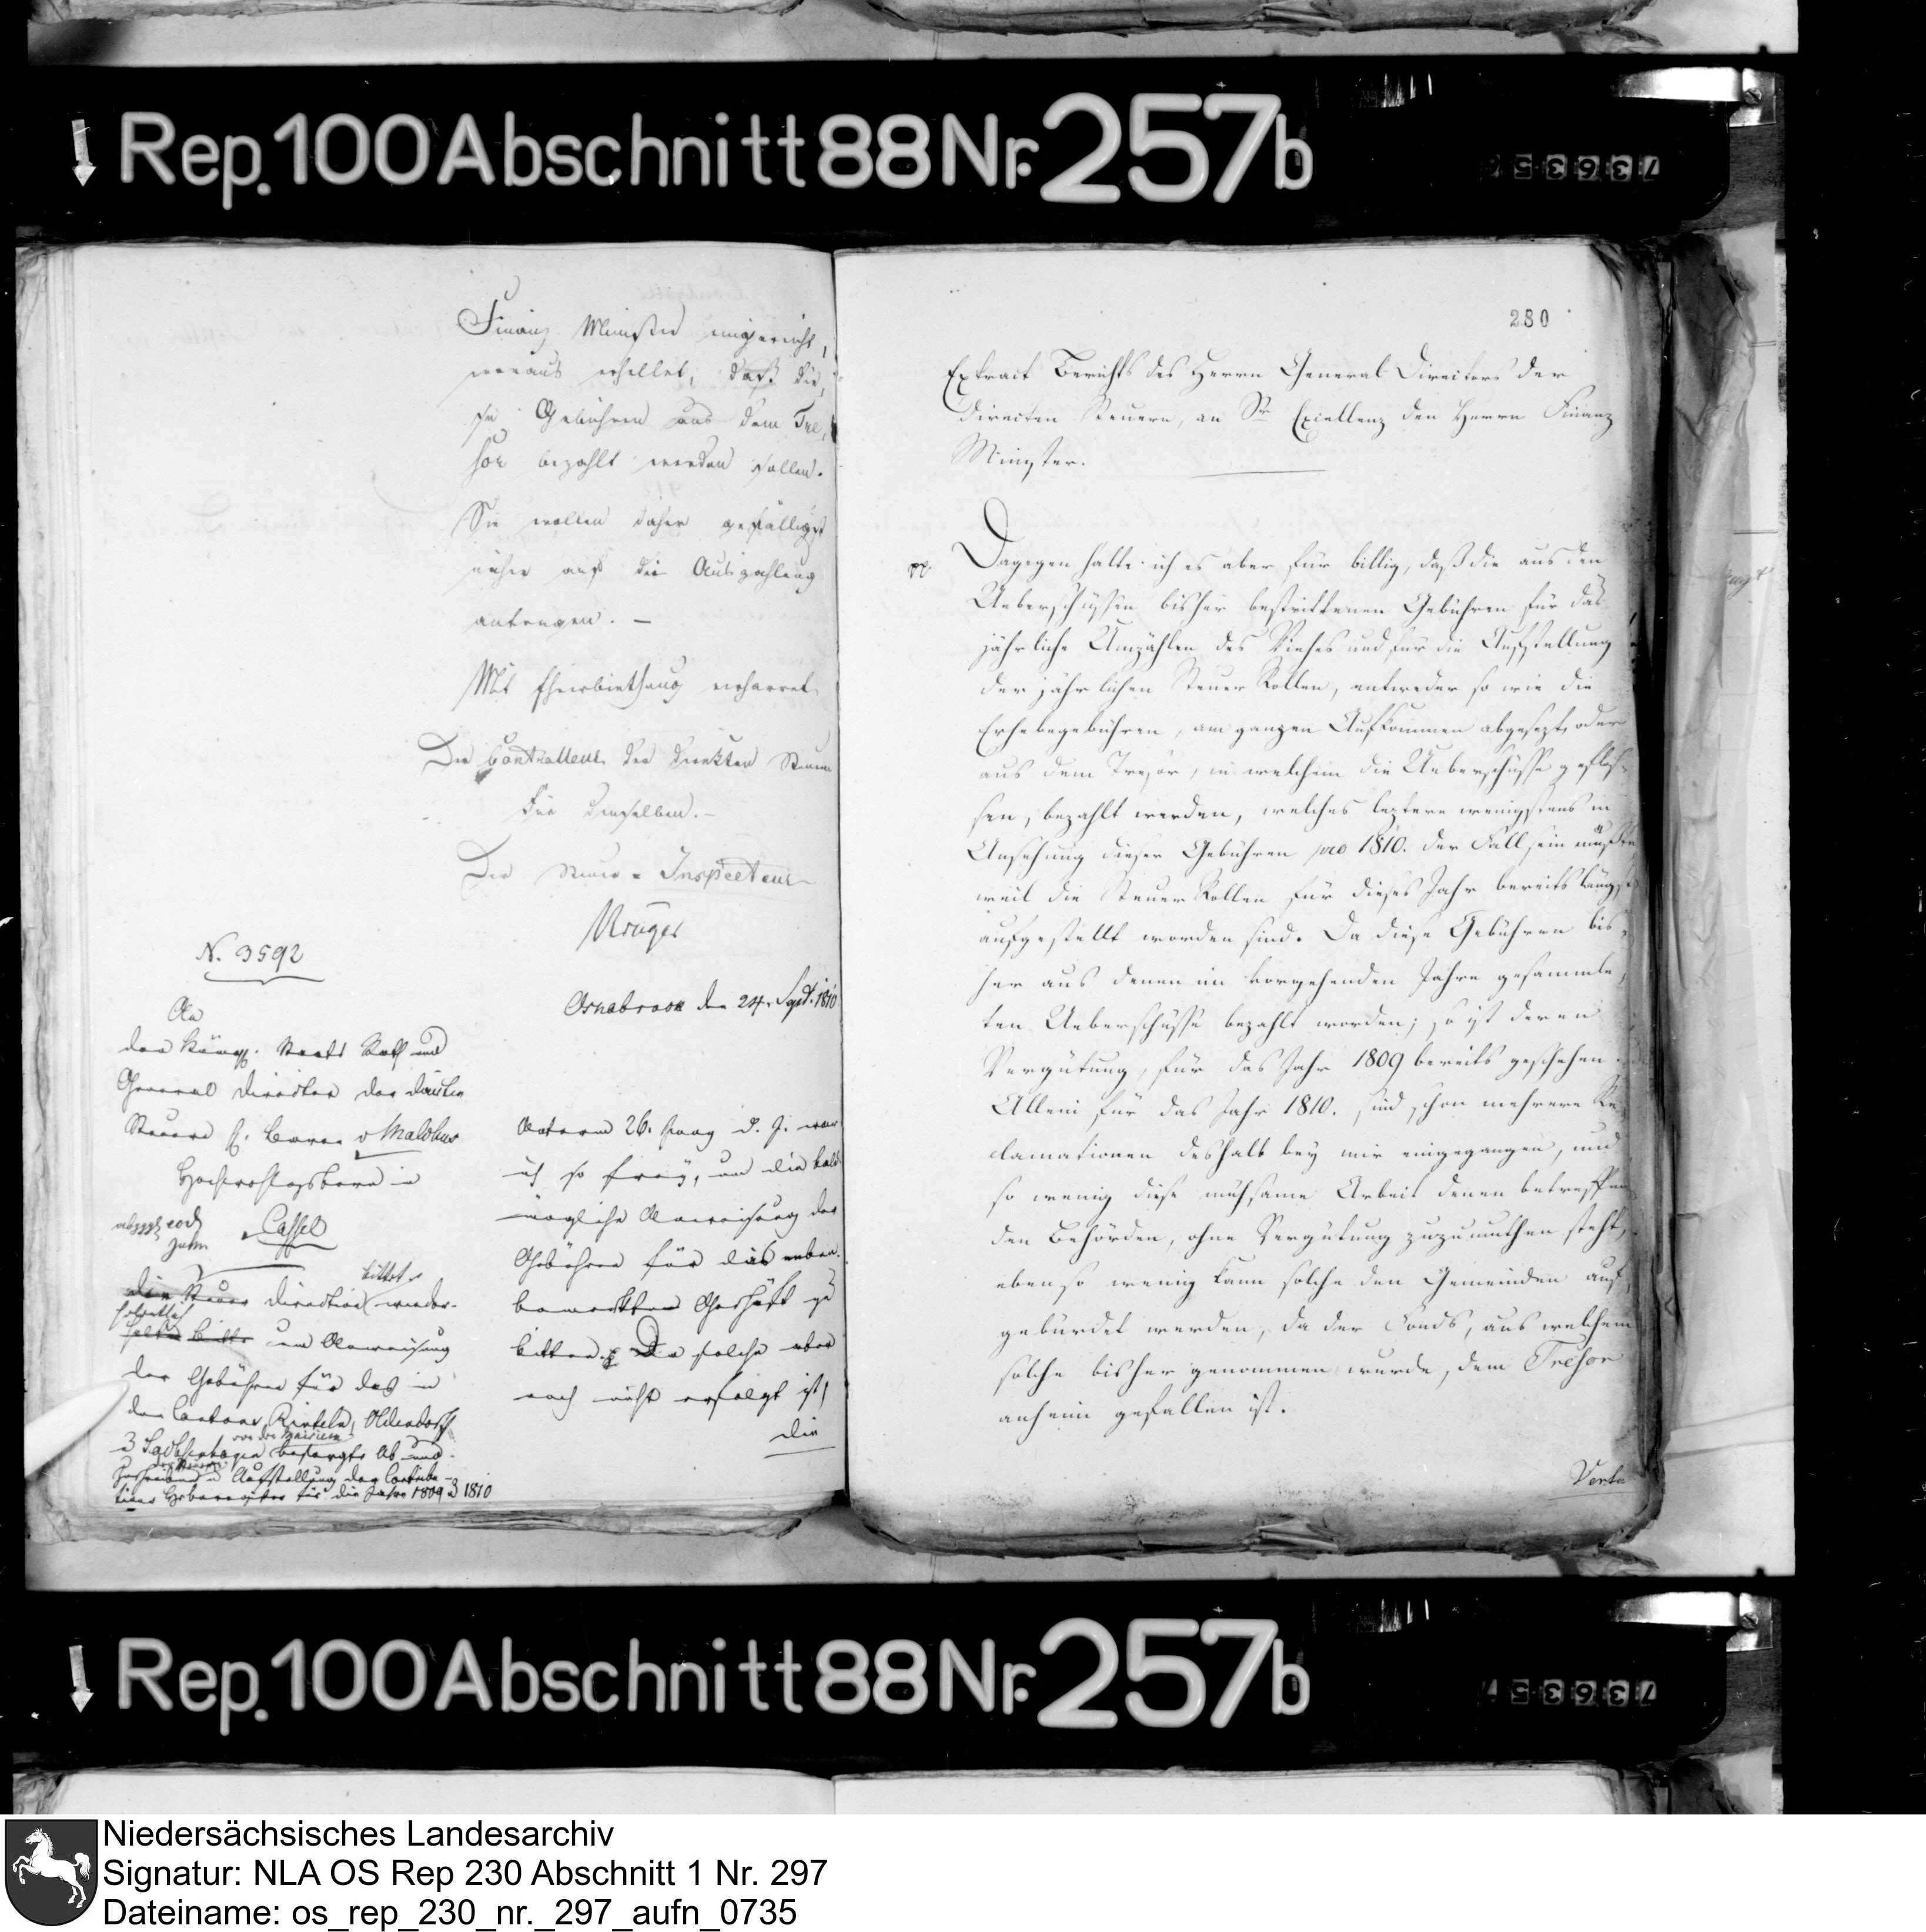 Rep. 100 Abschnitt 88 Nr. 257b
736356
Finanz Minister eingereicht,
woraus erhellet, daß die,
se Gebühren aus dem Tre,
sor bezahlt werden sollen.
Sie wollen daher gefälligst
näher auf die Auszahlung
antragen. —
Mit Ehrerbiethung verharret
Der Controlleur der direkten Steuern
Für denselben. —
Der Steuer = Inspecteur
Krüger
N. 3592
An
den Königl. Staats Rath und
General Director der directen
Steuern H. Baron v Malchus
Hochwohlgeboren in
Cassel
bittet
die Steuer Direction wieder-
holentlich
holte Bitte um Anweisung
der Gebühren für das in
den Cantons Rinteln, Oldendorf
von den Mairien
& Sachsenhagen besorgte Ab und
Zuschreiben u Aufstellung der Contribu-
tions Heberegister für die Jahre 1809 & 1810
Osnabrück den 24. Sept. 1810
Unterm 26. d. J. war
ich so frey, um die bald
mögliche Anweisung der
Gebühren für das neben
bemerkte Geschäft zu
bitten. Da solche aber
noch nicht erfolgt ist,
die
280
Extract Berichts des Herrn General Directors der
directen Steuern, an Se Excellenz den Herrn Finanz
Minister.
pp. Dagegen halte ich es aber für billig, daß die aus den
Ueberschüssen bisher bestrittenen Gebühren für das
jährliche Umzählen des Viehes und für die Aufstellung
der jährlichen Steuer Rollen, entweder so wie die
Erhebegebühren, am ganzen Aufkommen abgesezt, oder
aus dem Tresor, in welchem die Ueberschüsse geflos-
sen, bezahlt werden, welches leztere wenigstens in
Ansehung dieser Gebühren pro 1810. der Fall sein müßte
weil die Steuer Rollen für dieses Jahr bereits längst
aufgestellt worden sind. Da diese Gebühren bis,
her aus denen im vorgehenden Jahre gesammle,
ten Ueberschüsse bezahlt worden; so ist deren
Vergütung, für das Jahr 1809 bereits geschehen
Allein für das Jahr 1810. sind schon mehrere Re,
clamationen deshalb bey mir eingegangen, und
so wenig diese mühsame Arbeit denen betreffen
den Behörden, ohne Vergütung zuzumuthen steht,
eben so wenig kann solche den Gemeinden auf,
gebürdet werden, da der Fonds, aus welchem
solche bisher genommen wurde, dem Trésor
anheim gefallen ist.
Verte
Rep. 100 Abschnitt 88 Nr. 257b
736357
Niedersächsisches Landesarchiv
Signatur: NLA OS Rep 230 Abschnitt 1 Nr. 297
Dateiname: os_rep_230_nr._297_aufn_0735